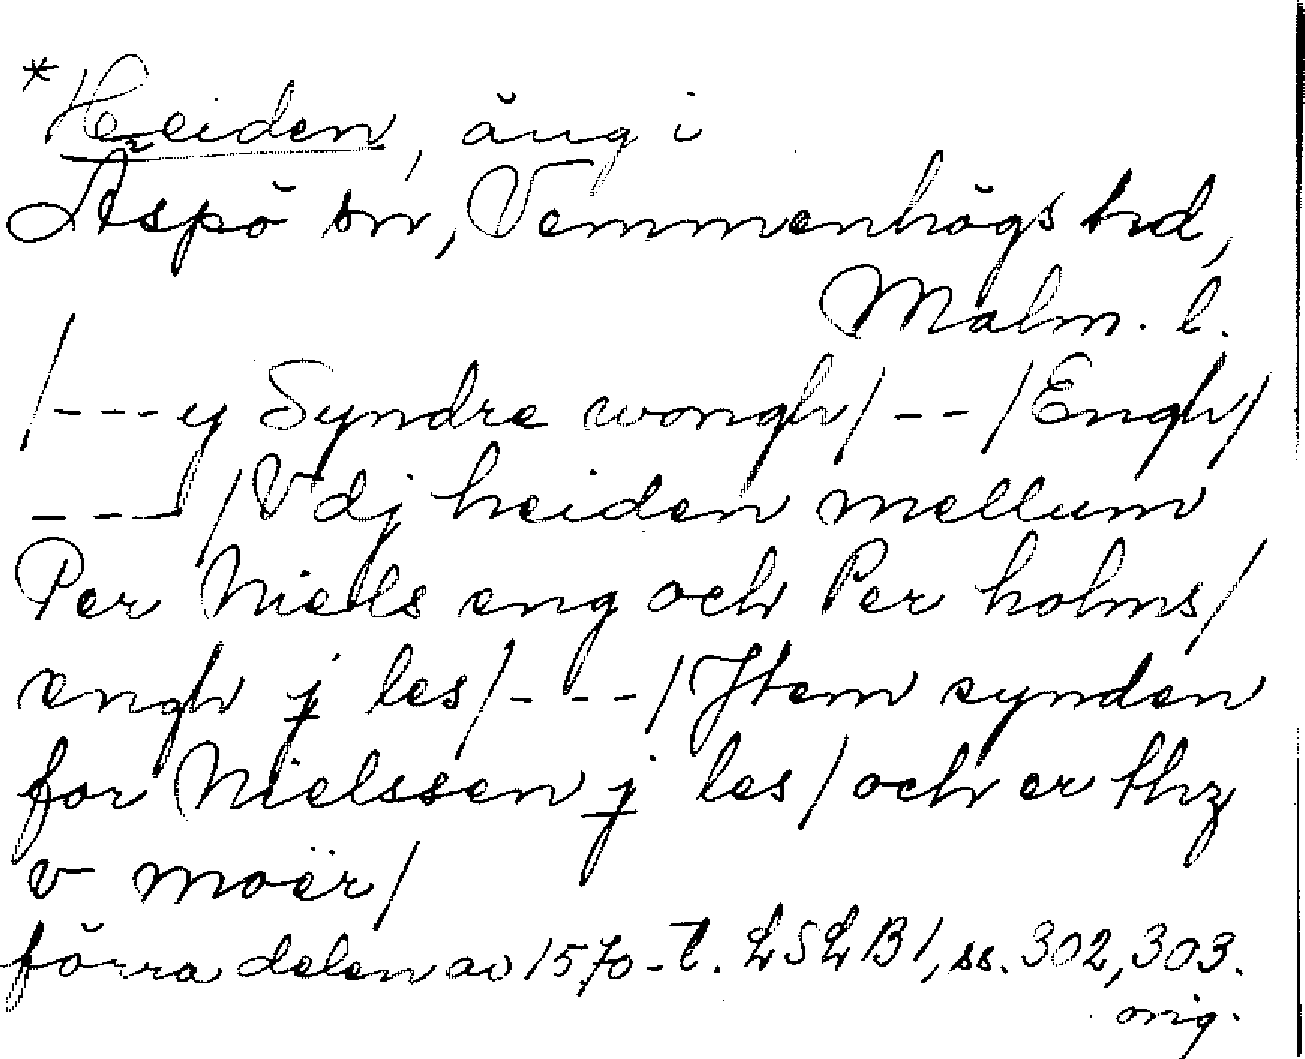 *Heiden, äng i
Äspö sn, Vemmenhögs hd,
Malm. l.
/---y Syndre wongh/--/Engh/
---/Vdj heiden mellum
Per Niels eng och Per holms/
engh j les/---/Jtem synden
for Nielssen j les/och er thz
v moër/
förra delen av 1570-t. LSLB1, ss. 302, 303.
orig.